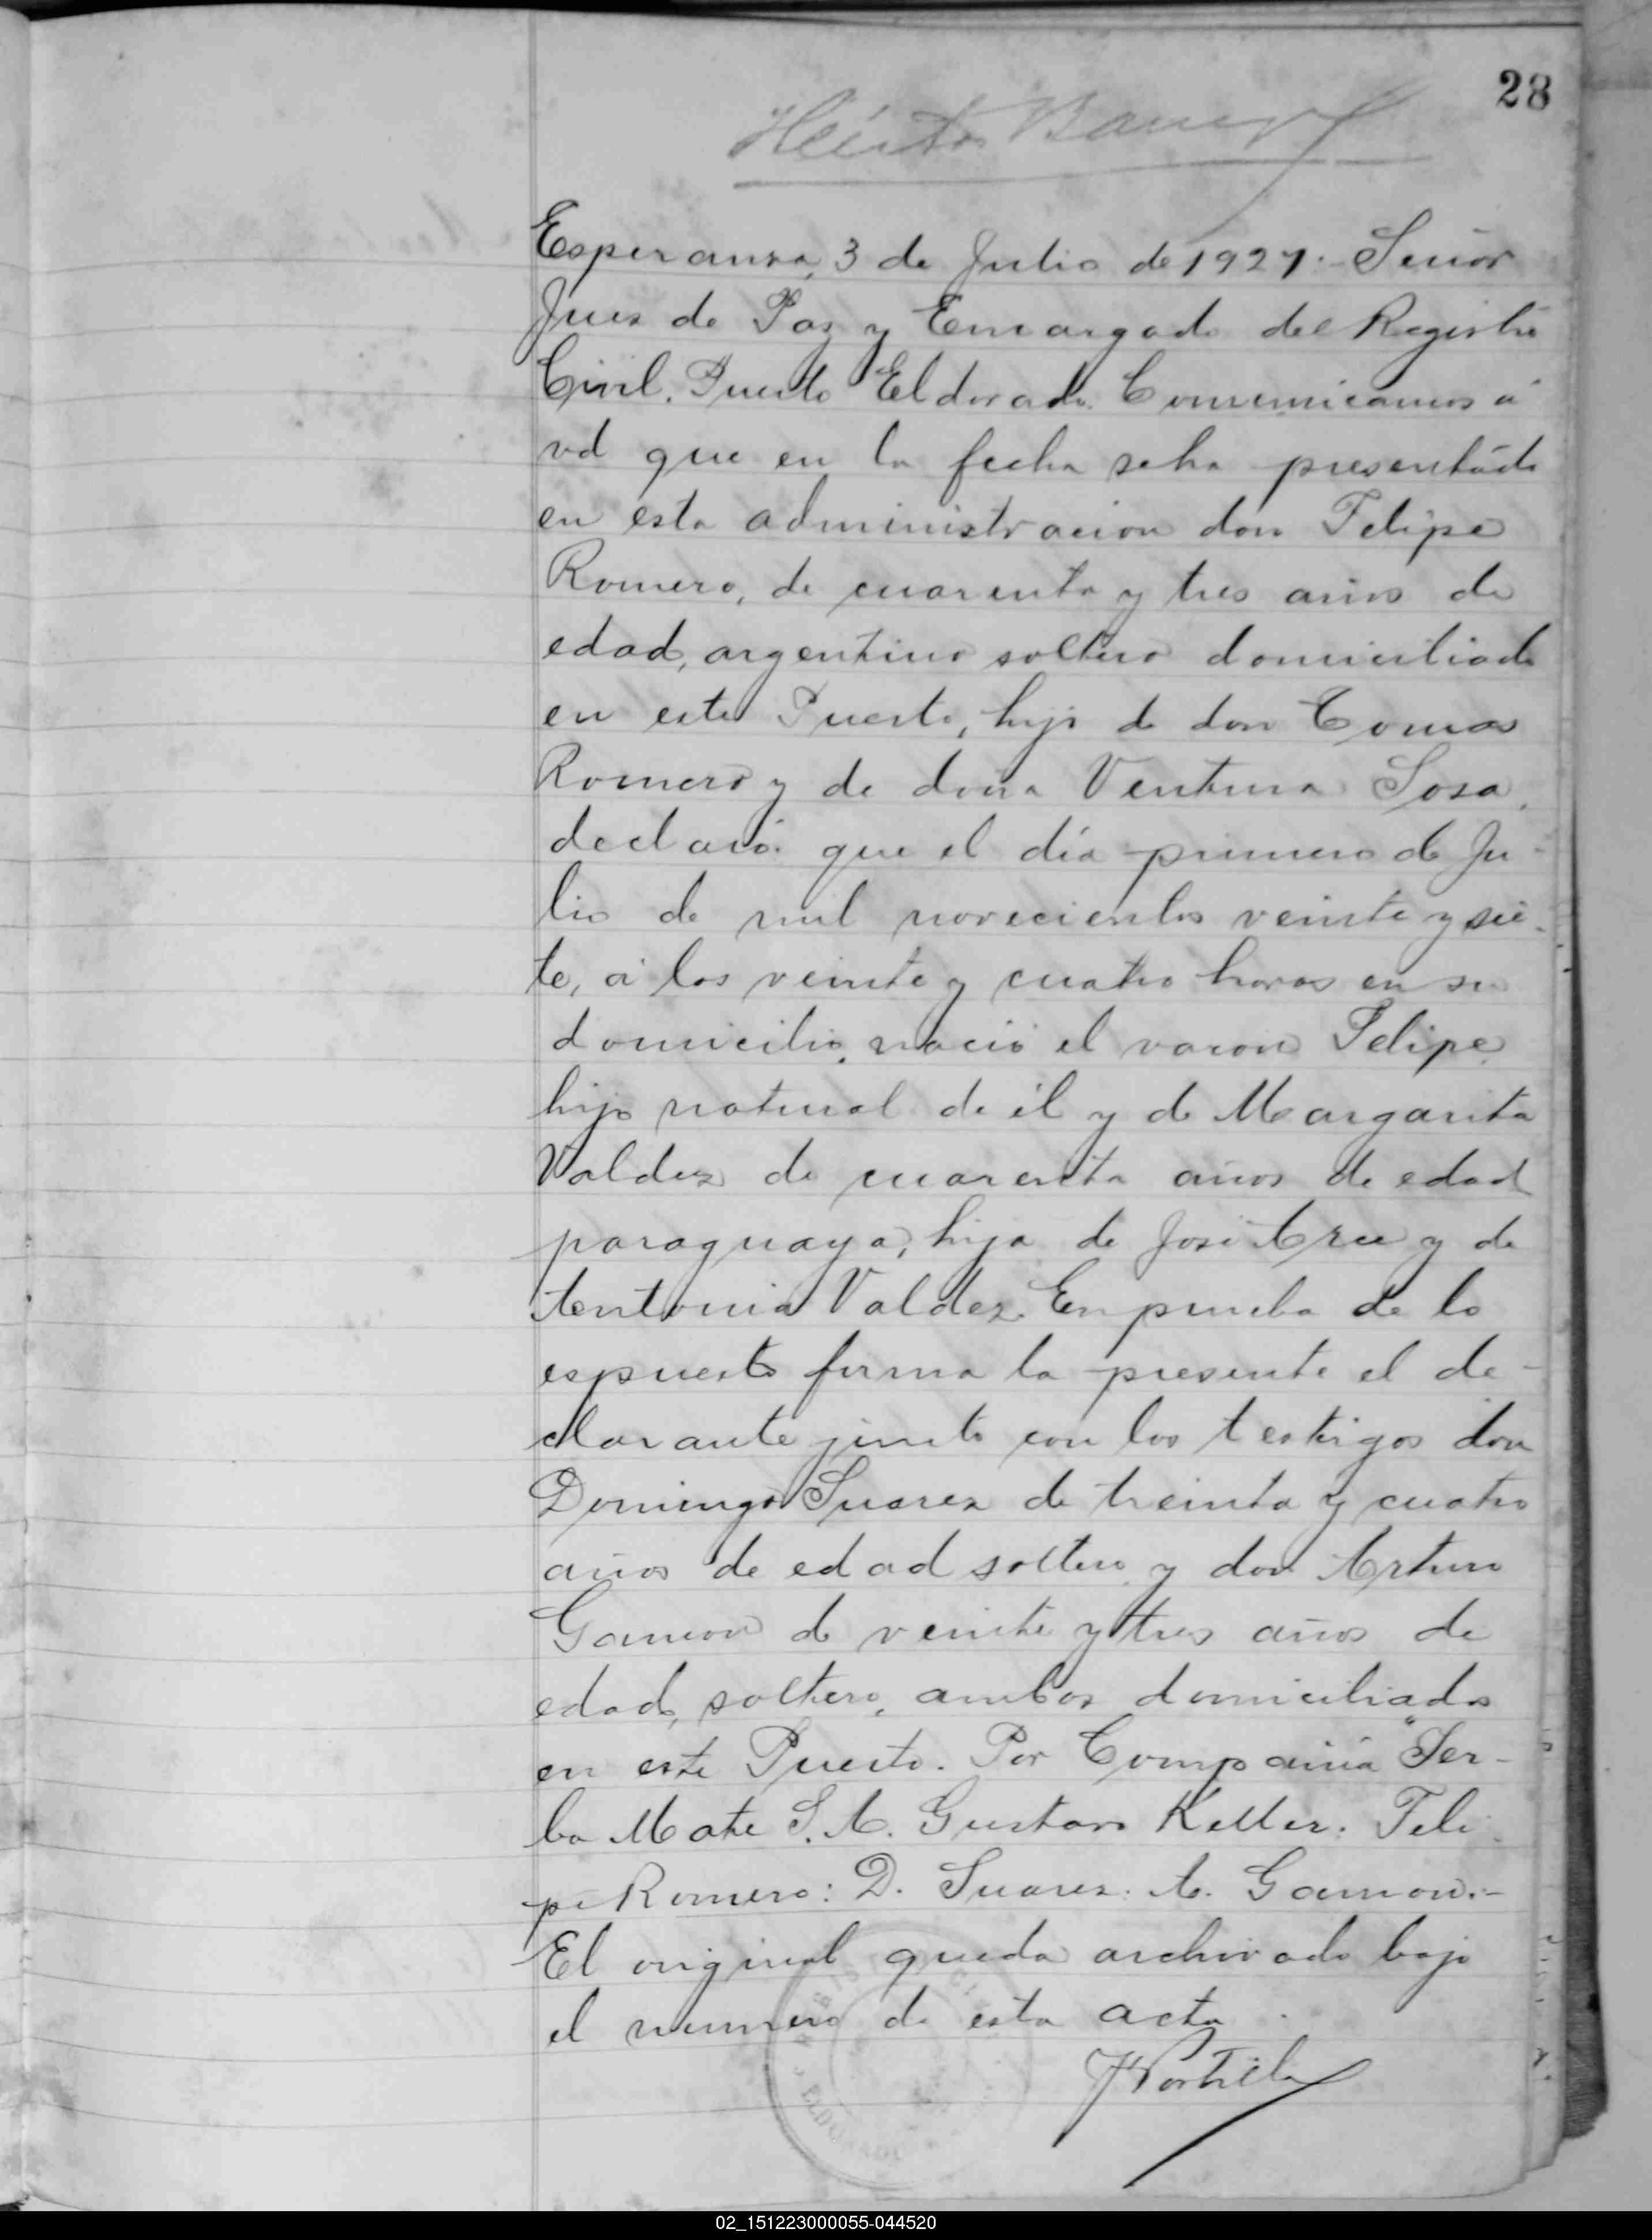 28
Esperanza, 3 de Julio de 1927.- Señor
Juez de Paz y Encargado del Registro
Civil. Puerto Eldorado. Comunicamos á
vd que en la fecha seha presentádo
en esta administracion don Felipe
Romero, de cuarenta y tres años de
edad, argentino soltero domiciliado
en este Puerto, hijo de don Tomas
Romero y de doña Ventura Sosa,
declaró: que el día primero de Ju-
lio de mil novecientos veinte y sie-
te, á las veinte y cuatro horas en su
domicilio, nació el varon Felipe,
hijo natural de él y de Margarita
Valdez de cuarenta años de edad
paraguaya, hija de José Arce y de
Antonia Valdez. En prueba de lo
espuesto firma la presente el de-
clarante junto con los testigos don
Domingo Suarez de treinta y cuatro
años de edad soltero y don Arturo
Gamon de veinte y tres años de
edad, soltero, ambos domiciliados
en este Puerto. Por Compañia "Yer-
ba Mate S. A. Gustavo Keller. Feli-
pe Romero: D. Suarez. A. Gamon.-
El original queda archivado bajo
el numero de esta acta.
ELDORADO
02_151223000055-044520